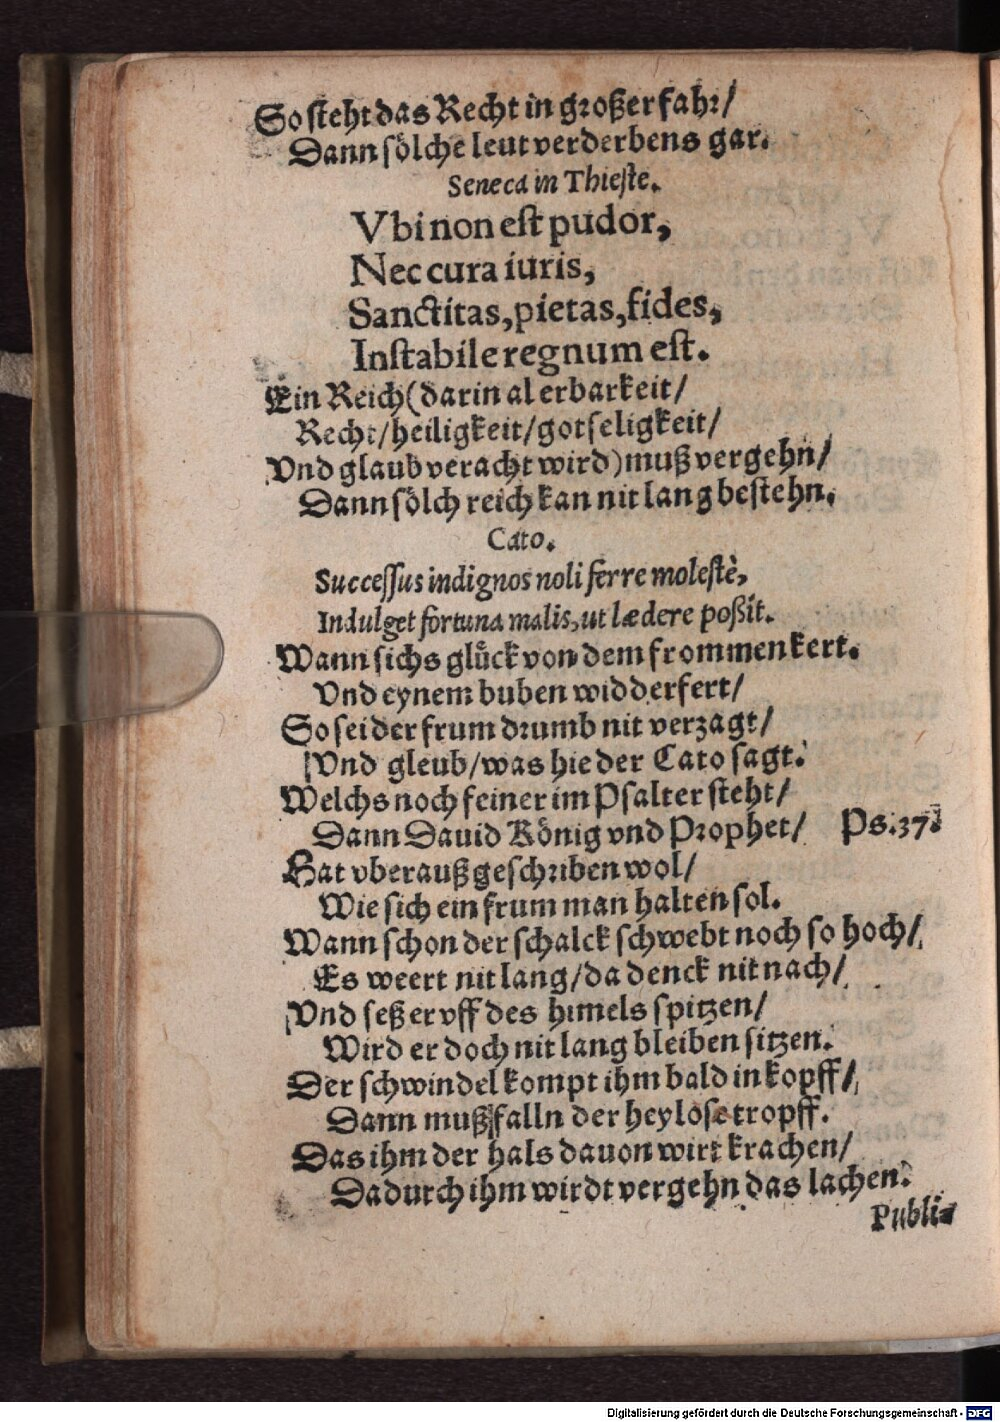 So steht das Recht in großer fahr/
Dann sölche leut verderbens gar.
Seneca in Thieste.
Vbi non est pudor,
Nec cura iuris,
Sanctitas, pietas, fides,
Instabile regnum est.
Ein Reich (darin al erbarkeit/
Recht/heiligkeit/gotseligkeit/
Vnd glaub veracht wird) muß vergehn/
Dann sölch reich kan nit lang bestehn.
Cato.
Successus indignos noli ferre molestè,
Indulget fortuna malis, ut lædere poßit.
Wann sichs glück von dem frommen kert.
Vnd eynem buben widderfert/
So sei der frum drumb nit verzagt/
Vnd gleub/was hie der Cato sagt.
Welchs noch feiner im Psalter steht/
Dann Dauid König vnd Prophet/ Ps.37.
Hat vberauß geschriben wol/
Wie sich ein frum man halten sol.
Wann schon der schalck schwebt noch so hoch/
Es weert nit lang/da denck nit nach/
Vnd seß er vff des himels spitzen/
Wird er doch nit lang bleiben sitzen.
Der schwindel kompt ihm bald in kopff/
Dann muß falln der heylose tropff.
Das ihm der hals dauon wirt krachen/
Dadurch ihm wirdt vergehn das lachen.
Publi-
Digitalisierung gefördert durch die Deutsche Forschungsgemeinschaft - DFG